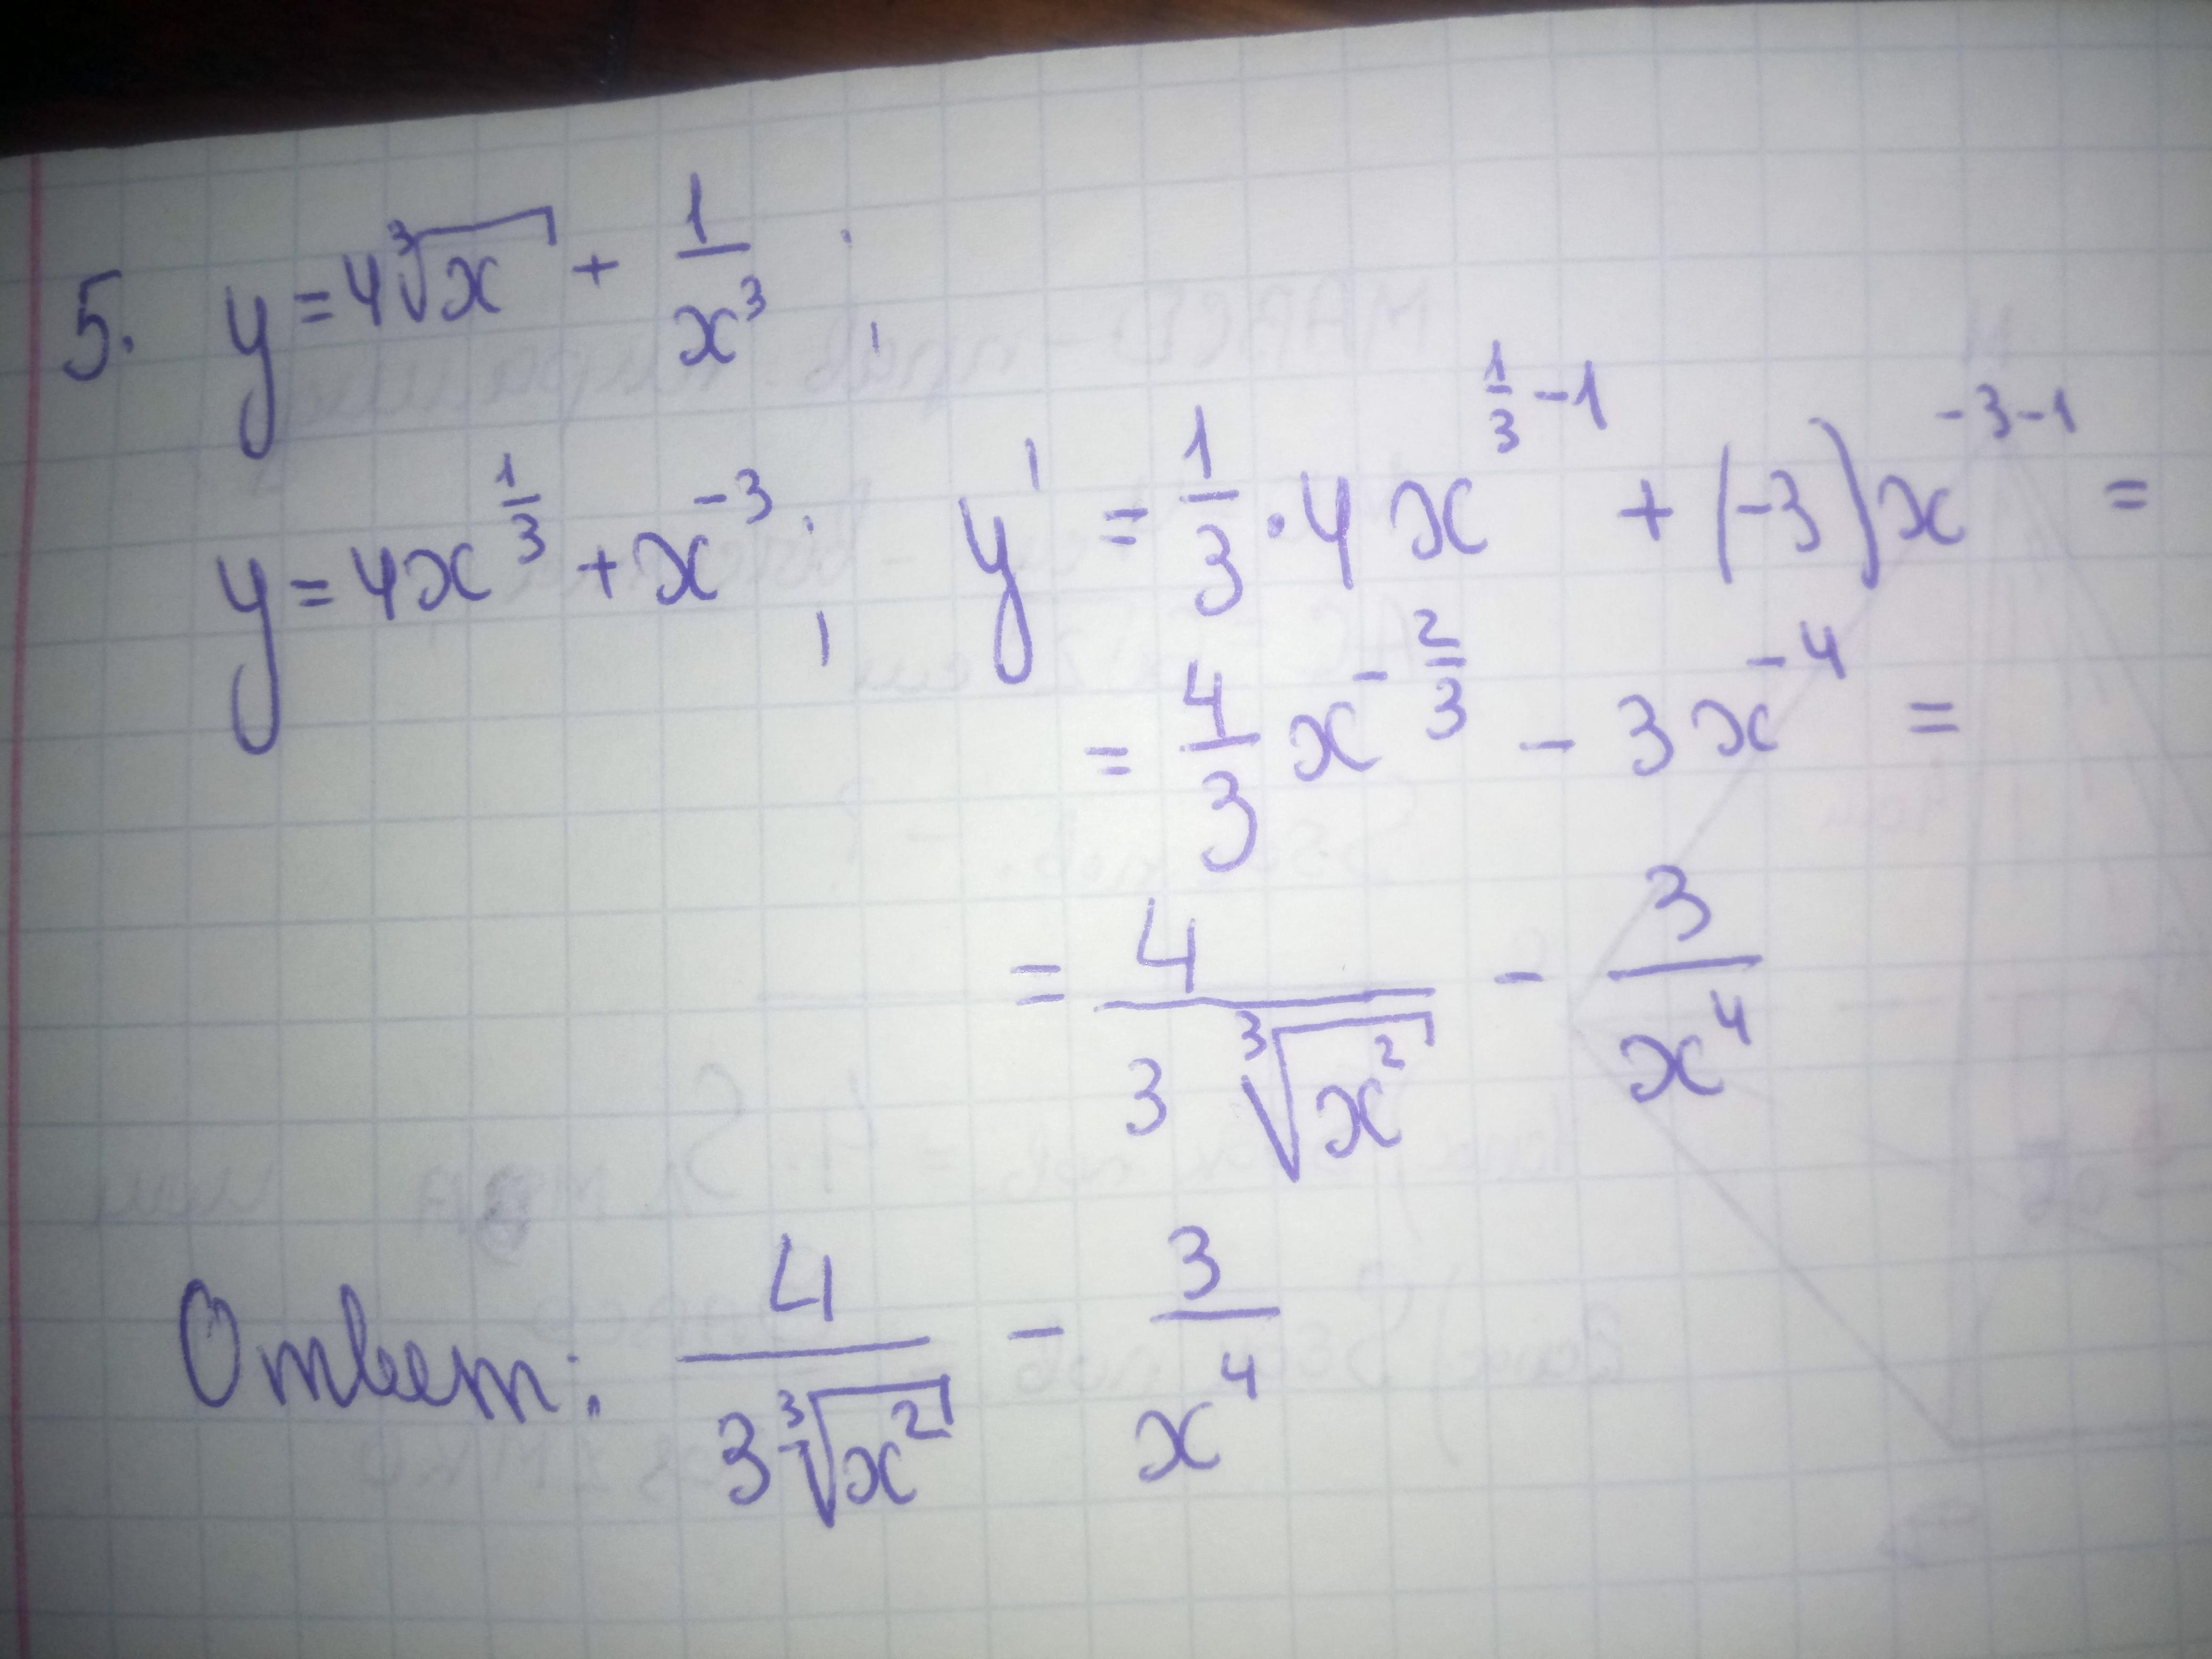 5. y = 4∛x + 1/x³ ;
y = 4x^(1/3) + x^(-3) ; y' = 1/3 · 4x^(1/3 - 1) + (-3)x^(-3-1) =
= 4/3 x^(-2/3) - 3x^(-4) =
= 4/(3 ∛(x²)) - 3/x⁴
Ответ: 4/(3∛(x²)) - 3/x⁴